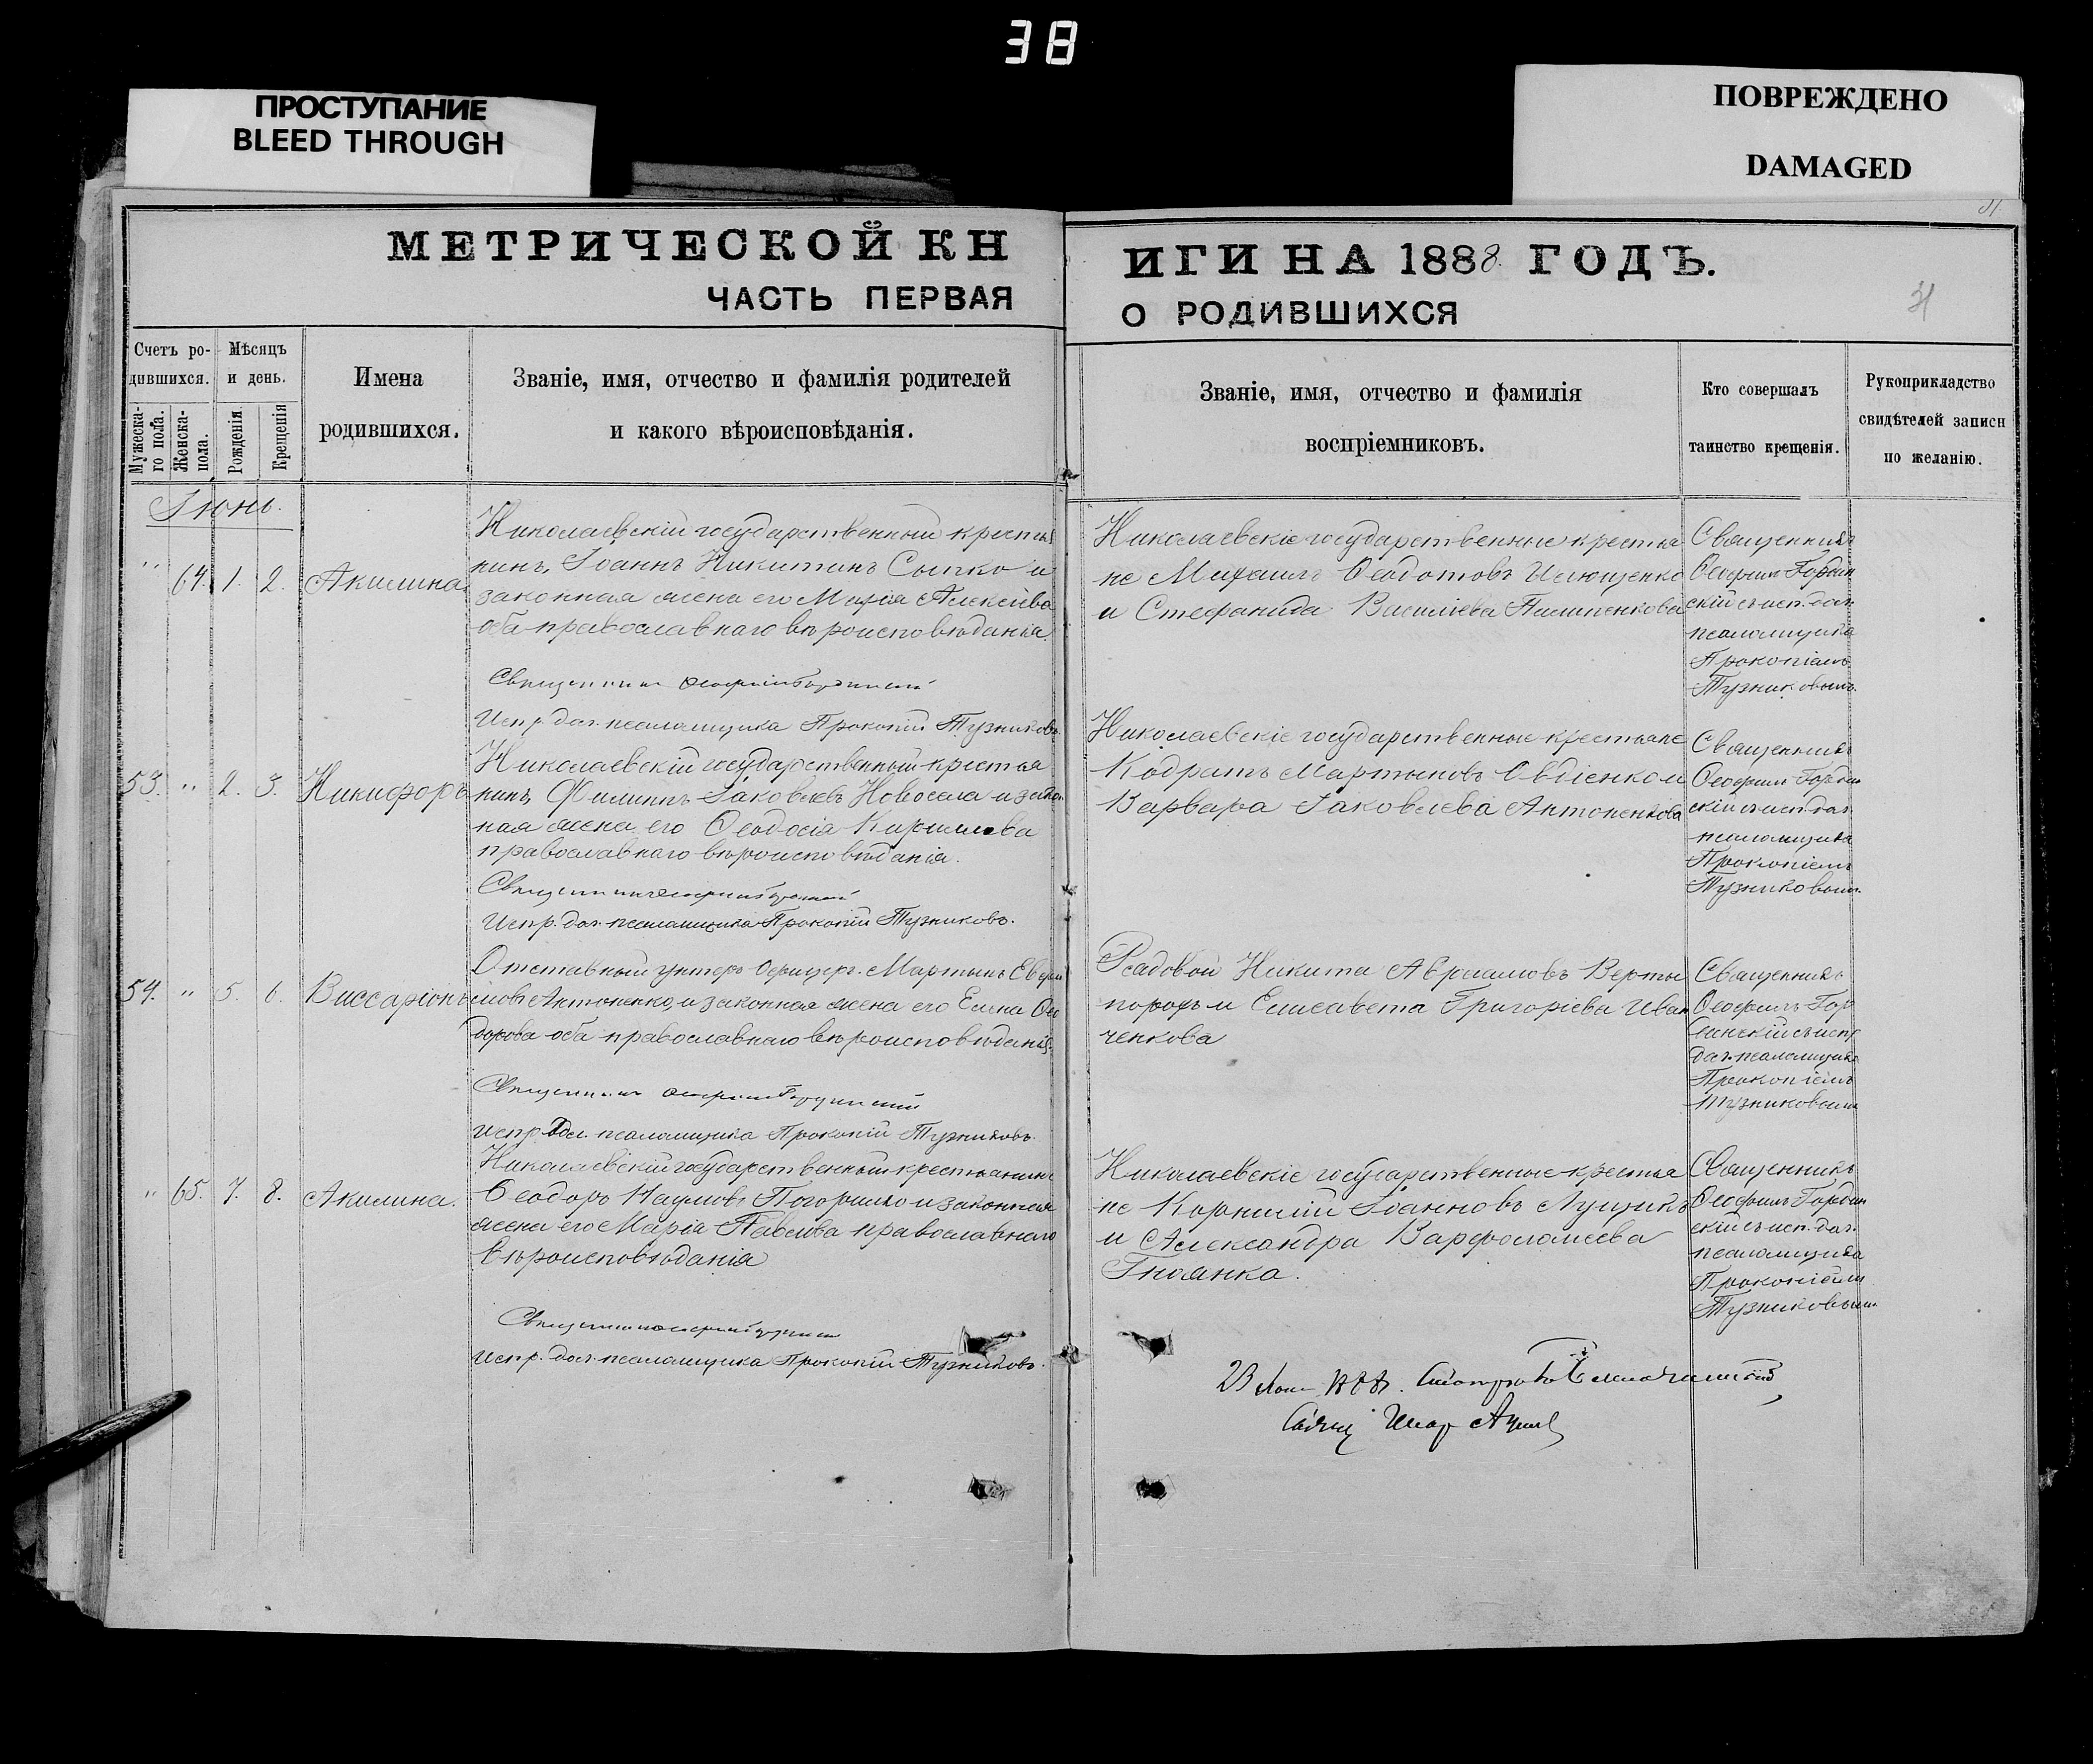 38
ПРОСТУПАНИЕ
BLEED THROUGH
ПОВРЕЖДЕНО
DAMAGED
МЕТРИЧЕСКОЙ КН
ЧАСТЬ ПЕРВАЯ
ИГИ НА 1888 ГОДЪ.
О РОДИВШИХСЯ
Счетъ ро-
дившихся.
Мужеска-
го пола.
Женска-
пола.
Мѣсяцъ
и день.
Рожденія
Крещенія
Имена
родившихся.
Званіе, имя, отчество и фамилія родителей
и какого вѣроисповѣданія.
Званіе, имя, отчество и фамилія
воспріемниковъ.
Кто совершалъ
таинство крещенія.
Рукоприкладство
свидѣтелей записи
по желанію.
Іюнь.
" 64. 1. 2. Акилина
Николаевскій государственный крестья
нинъ, Іоаннъ Никитинъ и
законная жена его Марія Алексѣева
оба православнаго вѣроисповѣданія.
Священникъ
Испр. дол. псаломщика Прокопій Тузниковъ
Николаевскіе государственные крестья
не Михаилъ Ѳеодотовъ Илющенко
и Стефанида Василіева
Священникъ
Ѳеофилъ Гордин
скій съ исп. дол.
псаломщика
Прокопіемъ
Тузниковымъ.
53. " 2. 3. Никифоръ
Николаевскій государственный крестья
нинъ, Филиппъ Іаковлевъ Новосела и закон
ная жена его Ѳеодосія Кирилова
православнаго вѣроисповѣданія.
Священникъ
Испр. дол. псаломщика Прокопій Тузниковъ.
Николаевскіе государственные крестьяне
Кодратъ Мартыновъ Овдіенко и
Варвара Іаковлева Антоненкова
Священникъ
Ѳеофилъ Гордин
скій съ исп. дол.
псаломщика
Прокопіемъ
Тузниковымъ.
54. " 5. 6. Виссаріонъ
Отставный унтеръ Офицеръ Мартынъ
Антоненко, и законная жена его Елена Ѳео
дорова оба православнаго вѣроисповѣданія.
Священникъ
Испр. дол. псаломщика Прокопій Тузниковъ.
Рядовой Никита Авраамовъ Верты
порохъ и Елисавета Григоріева Иван
ченкова
Священникъ
Ѳеофилъ Гор
динскій съ исп.
дол. псаломщика
Прокопіемъ
Тузниковымъ
" 65. 7. 8. Акилина.
Николаевскій государственный крестьянинъ
Ѳеодоръ Наумовъ и законная
жена его Марія Павлова православнаго
вѣроисповѣданія
Священникъ
Испр. дол. псаломщика Прокопій Тузниковъ.
Николаевскіе государственные крестья
не Корнилій Іоанновъ Лущикъ
и Александра Варфоломеева
Гнояика.
Священникъ
Ѳеофилъ Гордин
скій съ исп. дол.
псаломщика
Прокопіемъ
Тузниковымъ